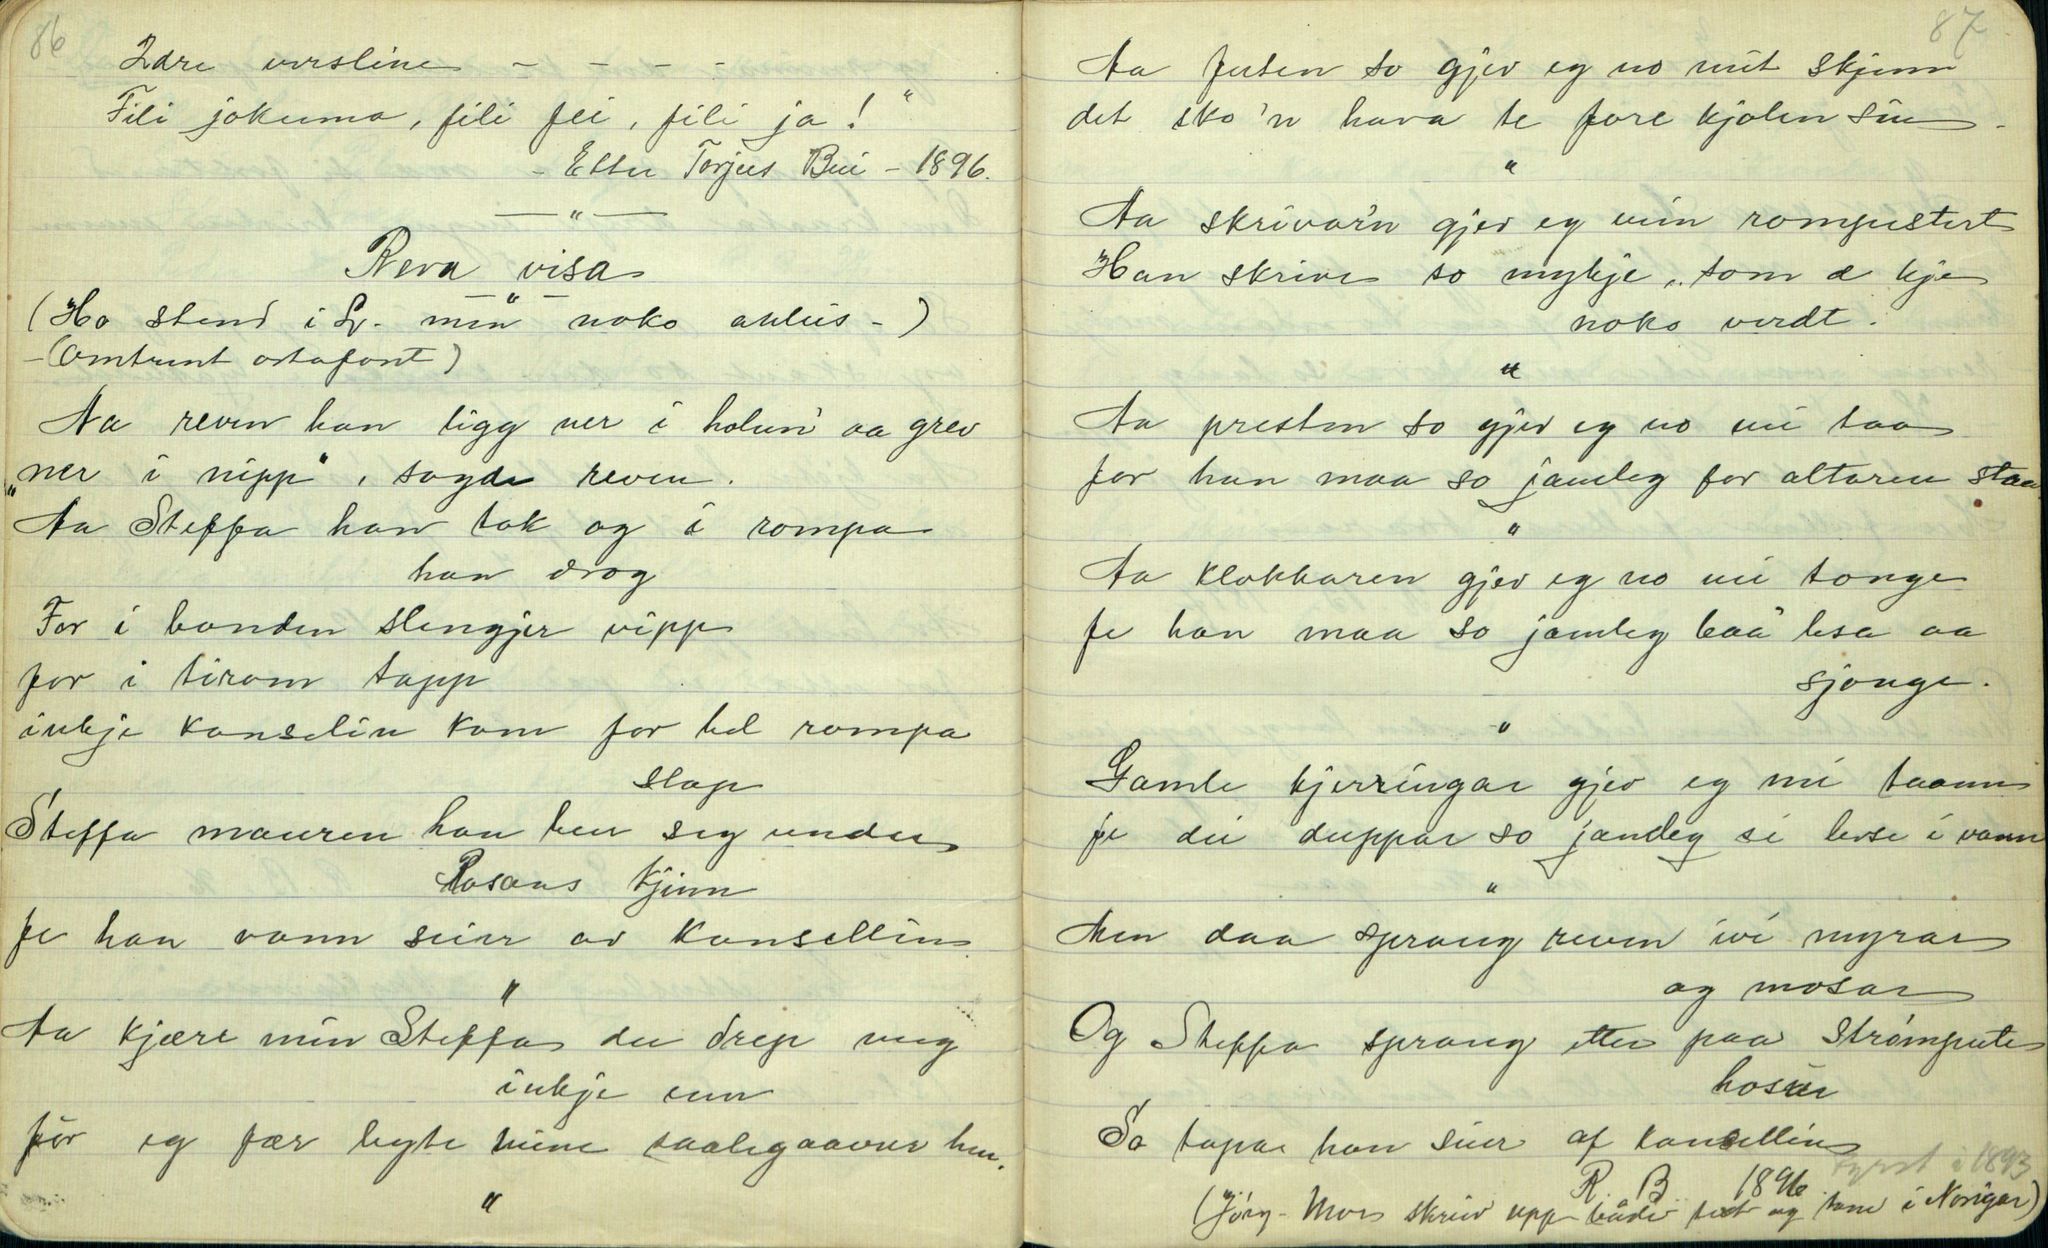 86
2dre versline - - - -
Fili jokuma, fili fei, fili ja! "
- Etter Torjus Bui - 1896.
— " —
Reva visa
— " —
(Ho stend i L. min noko anleis -)
- (Omtrent ortafont)
Aa reven han ligg ner i holun aa grev
"ner i nipp", sagde reven.
Aa Steffa han tok og i rompa
han drog
For i bonden slengjer vipp
for i tirom tapp
inkje kanselin kom for hel rompa
slap
Steffa mauren han ber seg under
Rosans kjinn
fe han vann seier av kansellin
"
Aa kjære min Steffa du drep meg
inkje enn
før eg fær bygte mine saalegaaver hen.
"
87
Aa futen so gjev eg no mit skjinn
det sko 'n hava te fore kjolen sin -
"
Aa skrivar'n gjev eg min rompestert
Han skrive so mykje, som æ kje
noko verdt.
"
Aa presten so gjev eg no mi taa
for han maa so jamleg for altaren staa
"
Aa klokkaren gjev eg no mi tonge
fe han maa so jamleg baa' lesa aa
sjonge.
"
Gamle kjerringar gjev eg mi taann
fe dei duppar so jamleg si leise i vann
"
Men daa sprang reven ivi myrar
og mosar
Og Steffa sprang etter paa strømpute
hosur
So tapa han sier af kansellin
R. B 1896. fyrst i 1893
(Jörg. Moe skreiv upp både text og tone i Norigar)